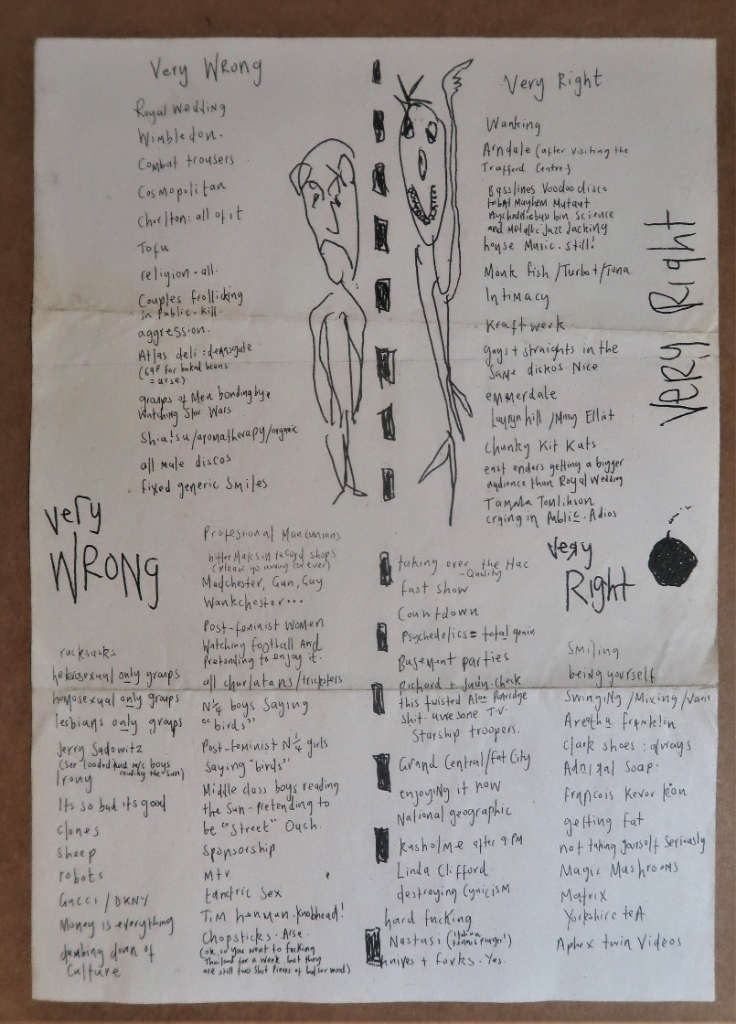 Very Wrong
Royal Wedding
Wimbledon.
Combat trousers
Cosmopolitan
Chorlton: all of it
Tofu
religion - all.
Couples frollicking
in public. kill.
aggression.
Atlas deli: deansgate
(69P for baked beans
= arse)
groups of Men bonding by
watching Star Wars
Shiatsu/aromatherapy/organic
all male discos
fixed generic smiles
Very Right
Wanking
Arndale (after visiting the
Trafford Centre)
Basslines Voodoo disco
Mayhem Mutant
bin Science
and Metallic Jazz Jacking
house Music. Still!
Monk fish / Turbot / Tuna
Intimacy
Kraftwerk
gays + straights in the
Same diskos. Nice
emmerdale
Lauryn hill / Missy Elliot
Chunky Kit Kats
east enders getting a bigger
audience than Royal Wedding
Tamala Tomlinson
crying in Public. Adios
VERY Right
very
WRONG
rucksacks
heterosexual only groups
homosexual only groups
lesbians only groups
Jerry Sadowitz
(see loaded and m/c boys
reading the Sun)
Irony
Its so bad its good
Clones
Sheep
robots
Gucci / DKNY
Money is everything
dumbing down of
Culture
Profesional Mancunians
bitter Males in record shops
(please go away for ever)
Madchester, Gun, Gay
Wankchester...
Post-feminist Women
Watching football And
Pretending to enjoy it.
all charlatans/tricksters
N¼ boys Saying
"birds"
Post-feminist N¼ girls
Saying "birds"
Middle class boys reading
the Sun - pretending to
be "Street" Ouch.
Sponsorship
Mtv
tantric Sex
Tim henman - Knobhead!
Chopsticks. Arse.
(ok so you went to fucking
Thailand for a week, but they
are still two shit pieces of balser wood)
very
Right
taking over the Hac
- Quality
fast show
Countdown
Psychedelics = total genius
Basement parties
Richard + Judy - check
this twisted Alan Partridge
shit. awesome T.V.
Starship troopers.
Grand Central/fat City
enjoying it now
National geographic
Rusholme after 9PM
Linda Clifford
destroying Cynicism
hard fucking
Nastasi (italian
tennis player!)
knives + forks. Yes.
Smiling
being yourself
Swinging / Mixing / Varis
Aretha franklin
Clark shoes: always
Admiral Soap:
francois Kevorkian
getting fat
not taking yourself Seriously
Magic Mushrooms
Matrix
Yorkshire teA
Aphex twin Videos